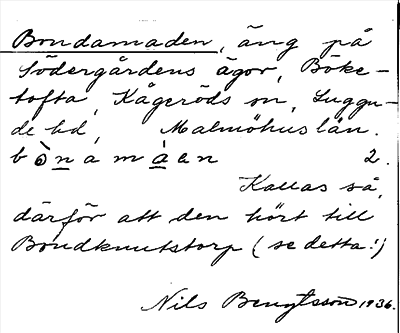 Bondamaden, äng på
Södergårdens ägor, Böke-
tofta, Kågeröds sn, Luggu-
de hd, Malmöhus län.
bònamàen 2.
Kallas så,
därför att den hört till
Bondknutstorp (se detta!)
Nils Bengtsson 1936.